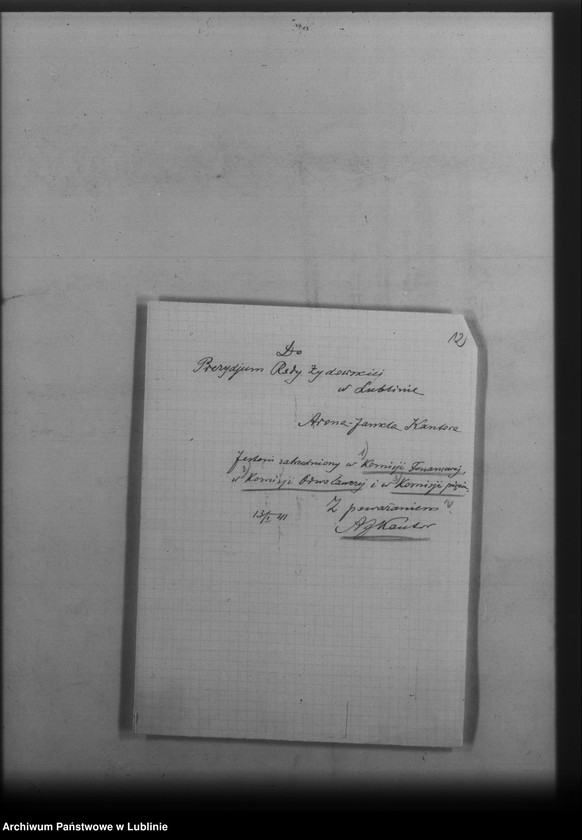 12)
Do
Prezydjum Rady Żydowskiej
w Lublinie
Arona-Jankla Kantora
Jestem zatrudniony w 1) Komisji Finansowej,
w 2) Komisji Odwoławczej i w 3) Komisji
Z poważaniem
13/I 41
AJKantor
Archiwum Państwowe w Lublinie